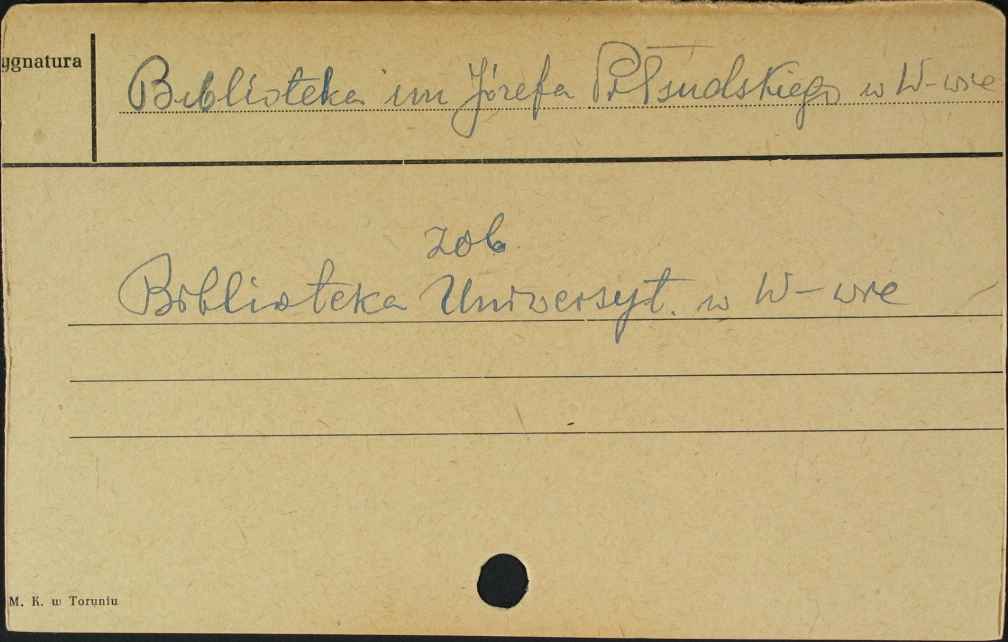 ygnatura
Biblioteka im Józefa Piłsudskiego w W-wie
zob
Biblioteka Uniwersyt. w W-wie
M. K. w Toruniu